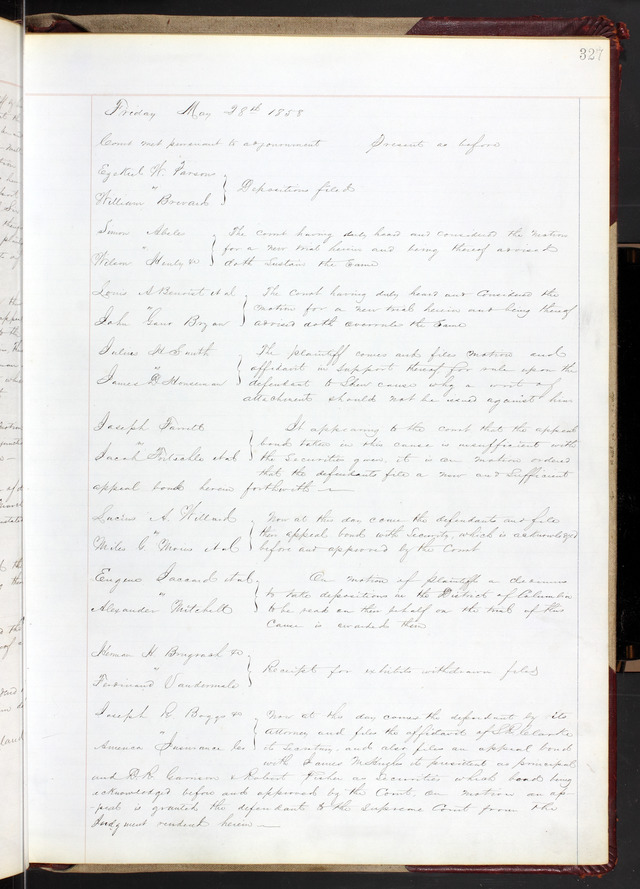 327
Friday May 28th 1858
Court met pursuant to adjournment Present as before
Ezekiel W. Parson
" } Depositions filed
William Brevard
Simon Abeles } The court having duly heard and considered the motion
" for a new trial herein and being thereof advised
Wilson Hunly &c doth Sustain the Same
Louis A Benoist et al } The Court having duly heard and Considered the
" motion for a new trial herein and being thereof
John Gano Bryan advised doth overrule the Same
Julius H Smith } The plaintiff comes and files motion and
" affidavit in Support thereof for rule upon the
James B Houseman defendant to Shew cause why a writ of
attachment should not be issued against him
Joseph Farrell } It appearing to the court that the appeal
" bond taken in this cause is insufficient with
Jacob et al the Securities given, it is on motion ordered
that the defendants file a new and Sufficient
appeal bond herein forthwith
Lucius A. Willard } Now at this day come the defendants and file
" their appeal bond with Security, which is acknowledged
Miles G Moies et al before and approved by the Court
Eugene Jaccard et al } On motion of plaintiffs a dedimus
" to take depositions in the District of Columbia
Alexander Mitchell to be read on their behalf on the trial of this
Cause is awarded them
Herman H &c
" } Receipt for exhibits withdrawn filed
Ferdinand Vandermale
Joseph E. Boggs &c } Now at this day comes the defendant by its
" attorney and files the affidavit of
America Insurance Co its Secretary, and also files an appeal bond
with James its president as principal
and D. R. Garrison & Robert Fisher as Securities which bond being
acknowledged before and approved by the Court, on motion an ap-
-peal is granted the defendant to the Supreme Court from the
Judgment rendered herein